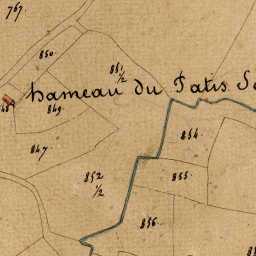 767
850
851 1/2
hameau du Patis
849
854
847
855
852 1/2
856